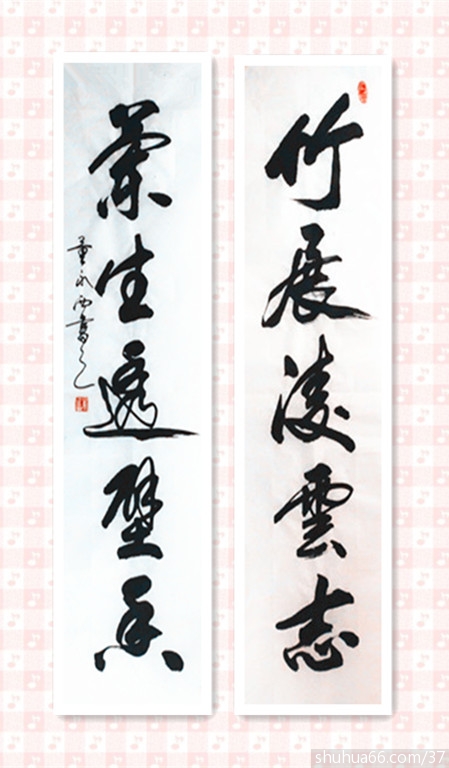 竹展凌雲志
蘭生透壁香
shuhua66.com/37